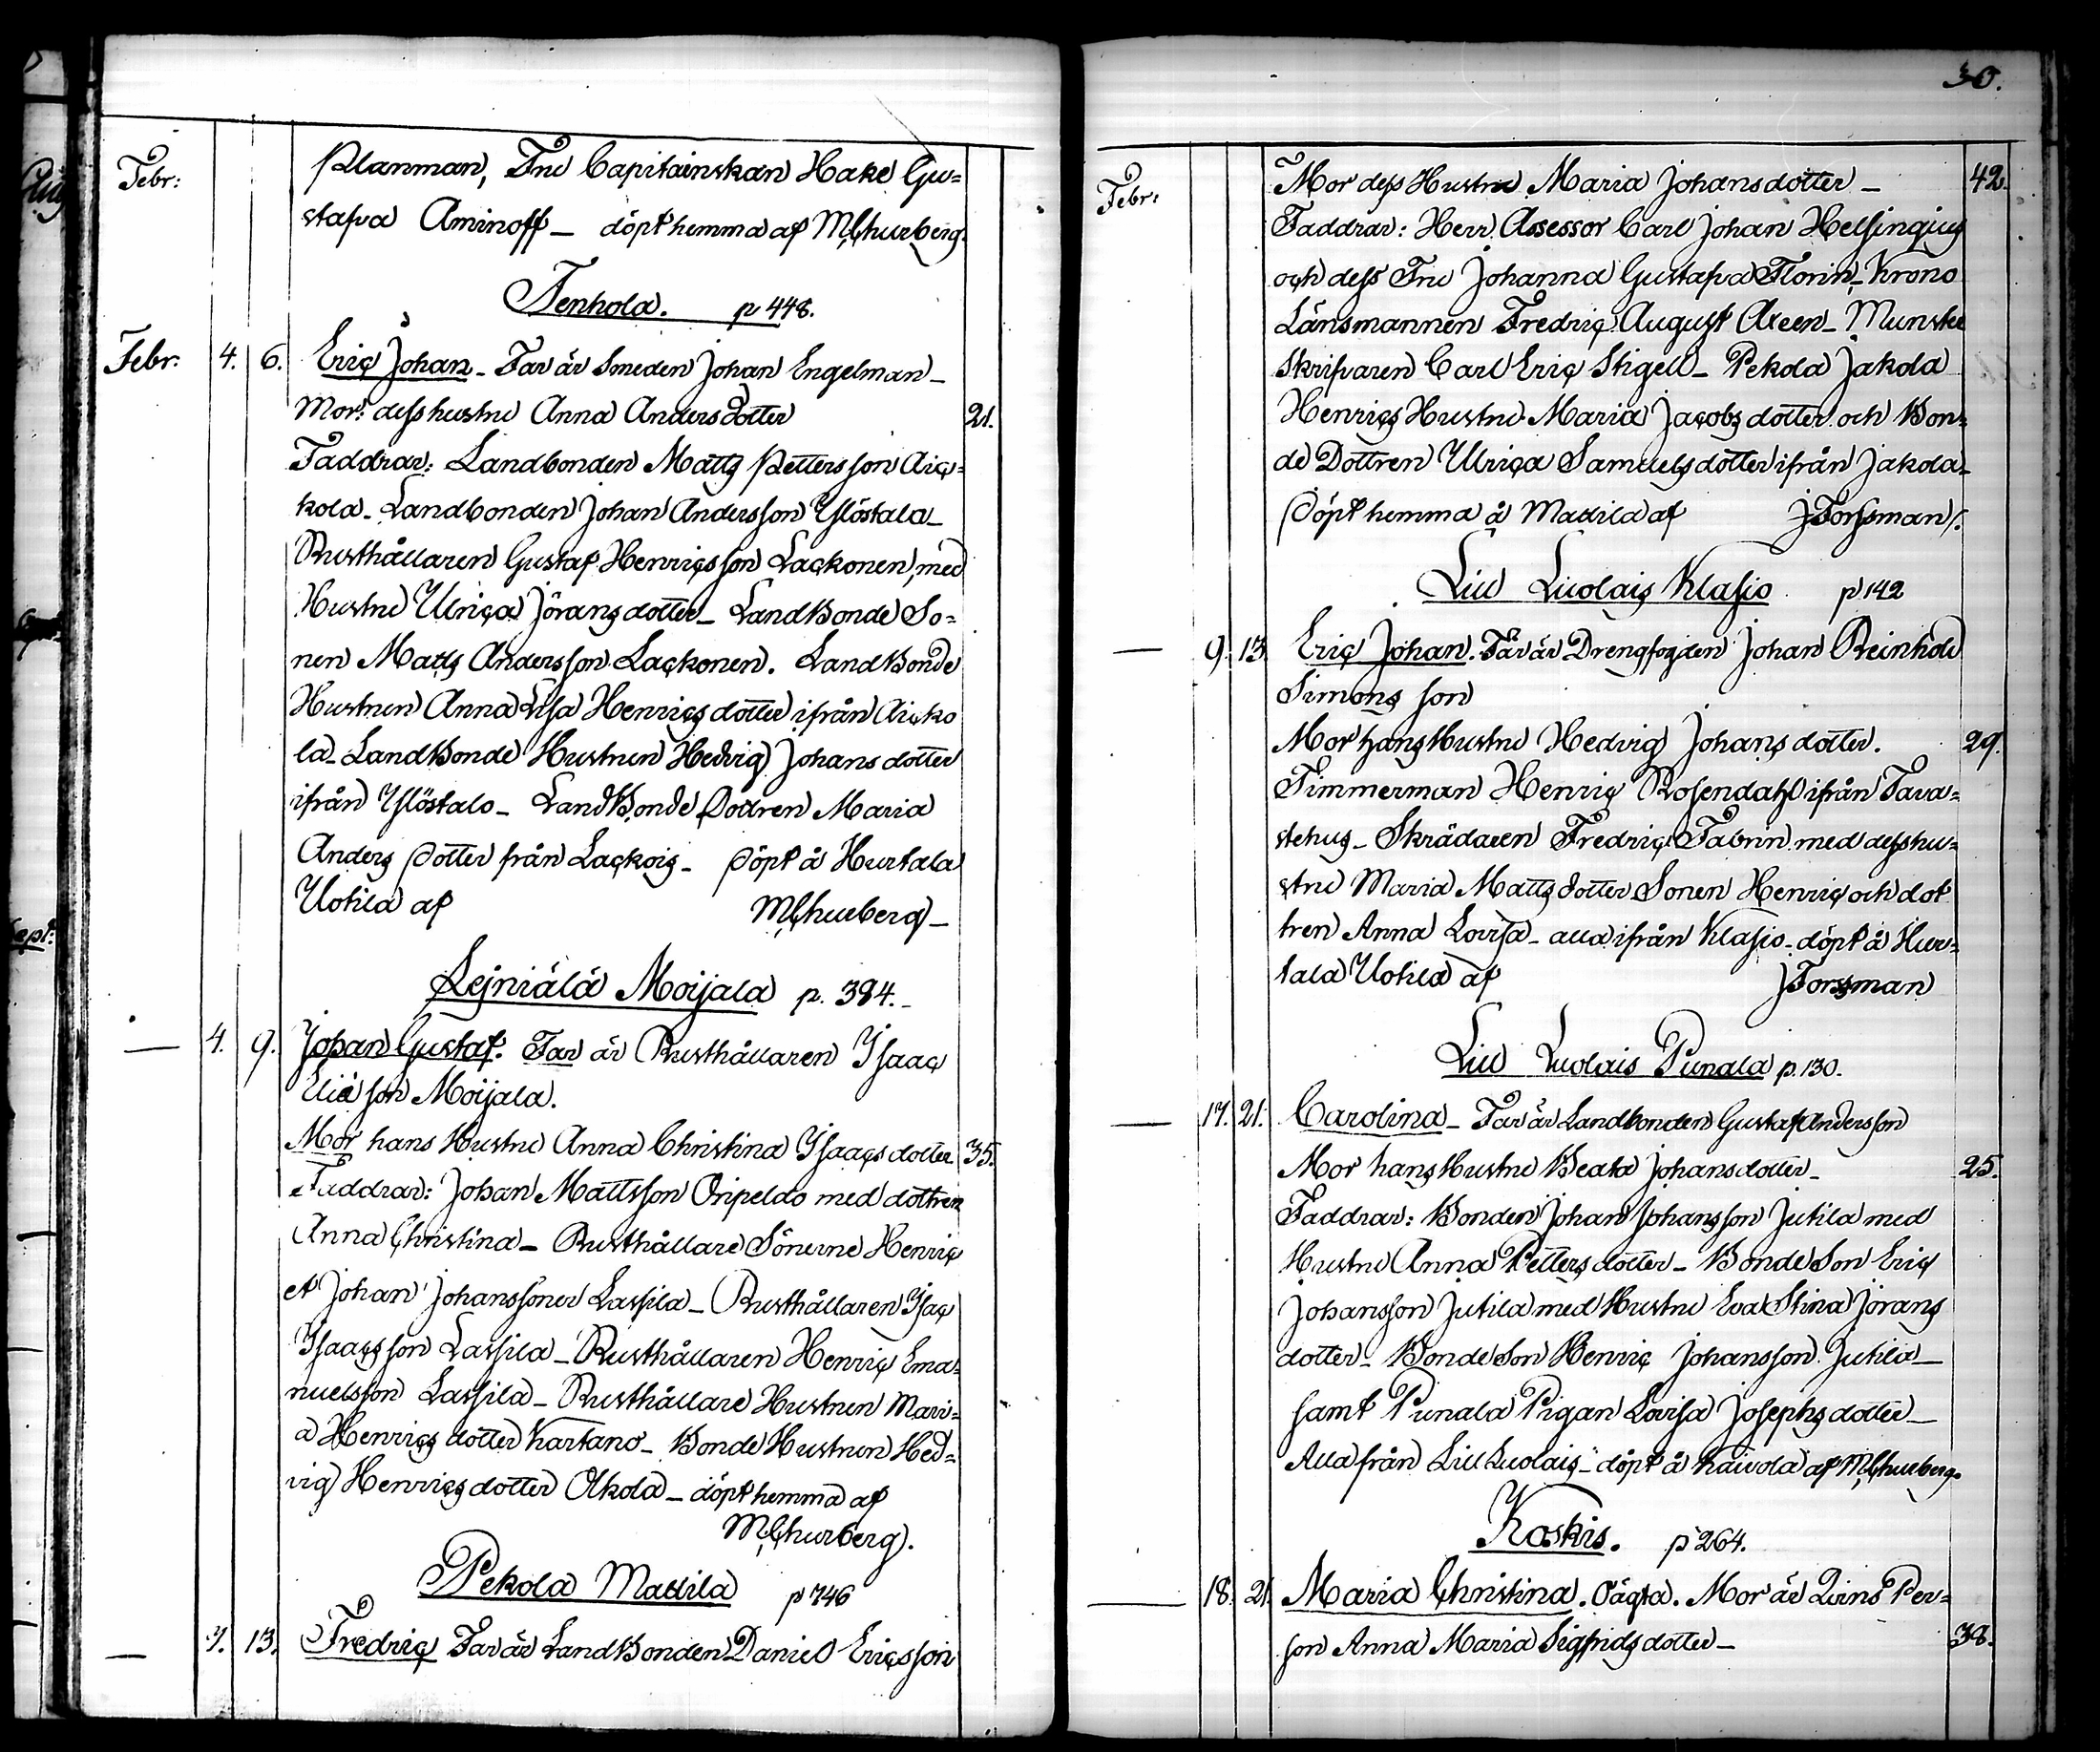 Febr:
Planman, Fru Capitainskan Hake Gu=
stafva Aminoff_ döpt hemma af M.Churberg.
Tenhola. p 448.
Febr. 4. 6. Eric Johan_ Far är Smeden Johan Engelman_
Mor: dess hustru Anna Anders dotter 21.
Faddrar: Landbonden Matts Pettersson Aic=
kola_ Landbonden Johan Andersson Ylöstalo_
Rusthållaren Gustaf Henricsson Lackonen, med
Hustru Ulrica Jörans dotter_ LandBonde So=
nen Matts Andersson Lackonen. LandBonde
Hustrun Anna Lisa Henrics dotter ifrån Aicko
la_ LandBonde Hustrun Hedvig Johans dotter
ifrån Ylöstalo_ LandBonde Dottren Maria
Anders Dotter från Lackois_ Döpt å Hurtala
Uotila af M.Churberg_
Lejniälä Moijala p. 394._
— 4. 9. Johan Gustaf. Far är Rusthållaren Isaac
Elia son Moijala.
Mor hans Hustru Anna Christina Isaacs dotter 35.
Faddrar: Johan Mattsson Oripeldo med dottren
Anna Christina_ Rusthållare Sönerne Henric
et Johan Johanssoner Lassila_ Rusthållaren Isac
Isaacsson Lassila_ Rusthållaren Henric Ema=
nuelsson Lassila_ Rusthållare Hustrun Mari=
a Henrics dotter Kartano_ Bonde Hustrun Hed=
vig Henrics dotter Okola_ döpt hemma af
M.Churberg.
Pekola Madila p 746
— 7. 13. Fredric Far är LandBonden Daniel Ericsson
30.
Febr:
Mor dess Hustru Maria Johans dotter_ 42.
Faddrar: Herr Assessor Carl Johan Helsingius
och dess Fru Johanna Gustafva Florin_ Krono
Länsmannen Fredric August Axeen_ Munster
Skrifvaren Carl Eric Stigell_ Pekola Jakola
Henrics Hustru Maria Jacobs dotter och Bon=
de Dottren Ulrica Samuels dotter ifrån Jakola_
Döpt hemma å Madila af J Forssman/.
Lill Luolais Klasio p 142
— 9. 13. Eric Johan. Far är Drengfogden Johan Reinhold
Simons son
Mor hans Hustru Hedvig Johans dotter. 29.
Timmerman Henric Rosendahl ifrån Tava=
stehus_ Skrädaren Fredric Fabrin med dess hu=
stru Maria Matts dotter Sonen Henric och dot
tren Anna Lovisa_ alla ifrån Klasio_ döpt å Hur=
tala Uotila af J Forssman
Lill Luolais Punala p. 130.
— 17. 21. Carolina_ Far är Landbonden Gustaf Andersson
Mor hans Hustru Beata Johans dotter_ 25.
Faddrar: Bonden Johan Johansson Jutila med
Hustru Anna Petters dotter_ Bonde Son Eric
Johansson Jutila med Hustru Eva Stina Jörans
dotter_ Bonde Son Henric Johansson Jutila_
samt Punala Pigan Lovisa Josephs dotter_
Alla från Lill Luolais_ döpt å Kaivola af M.Churberg.
Koskis. p 264.
— 18. 21. Maria Christina. Oäcta. Mor är Qvins Per=
son Anna Maria Sigfrids dotter_ 38.